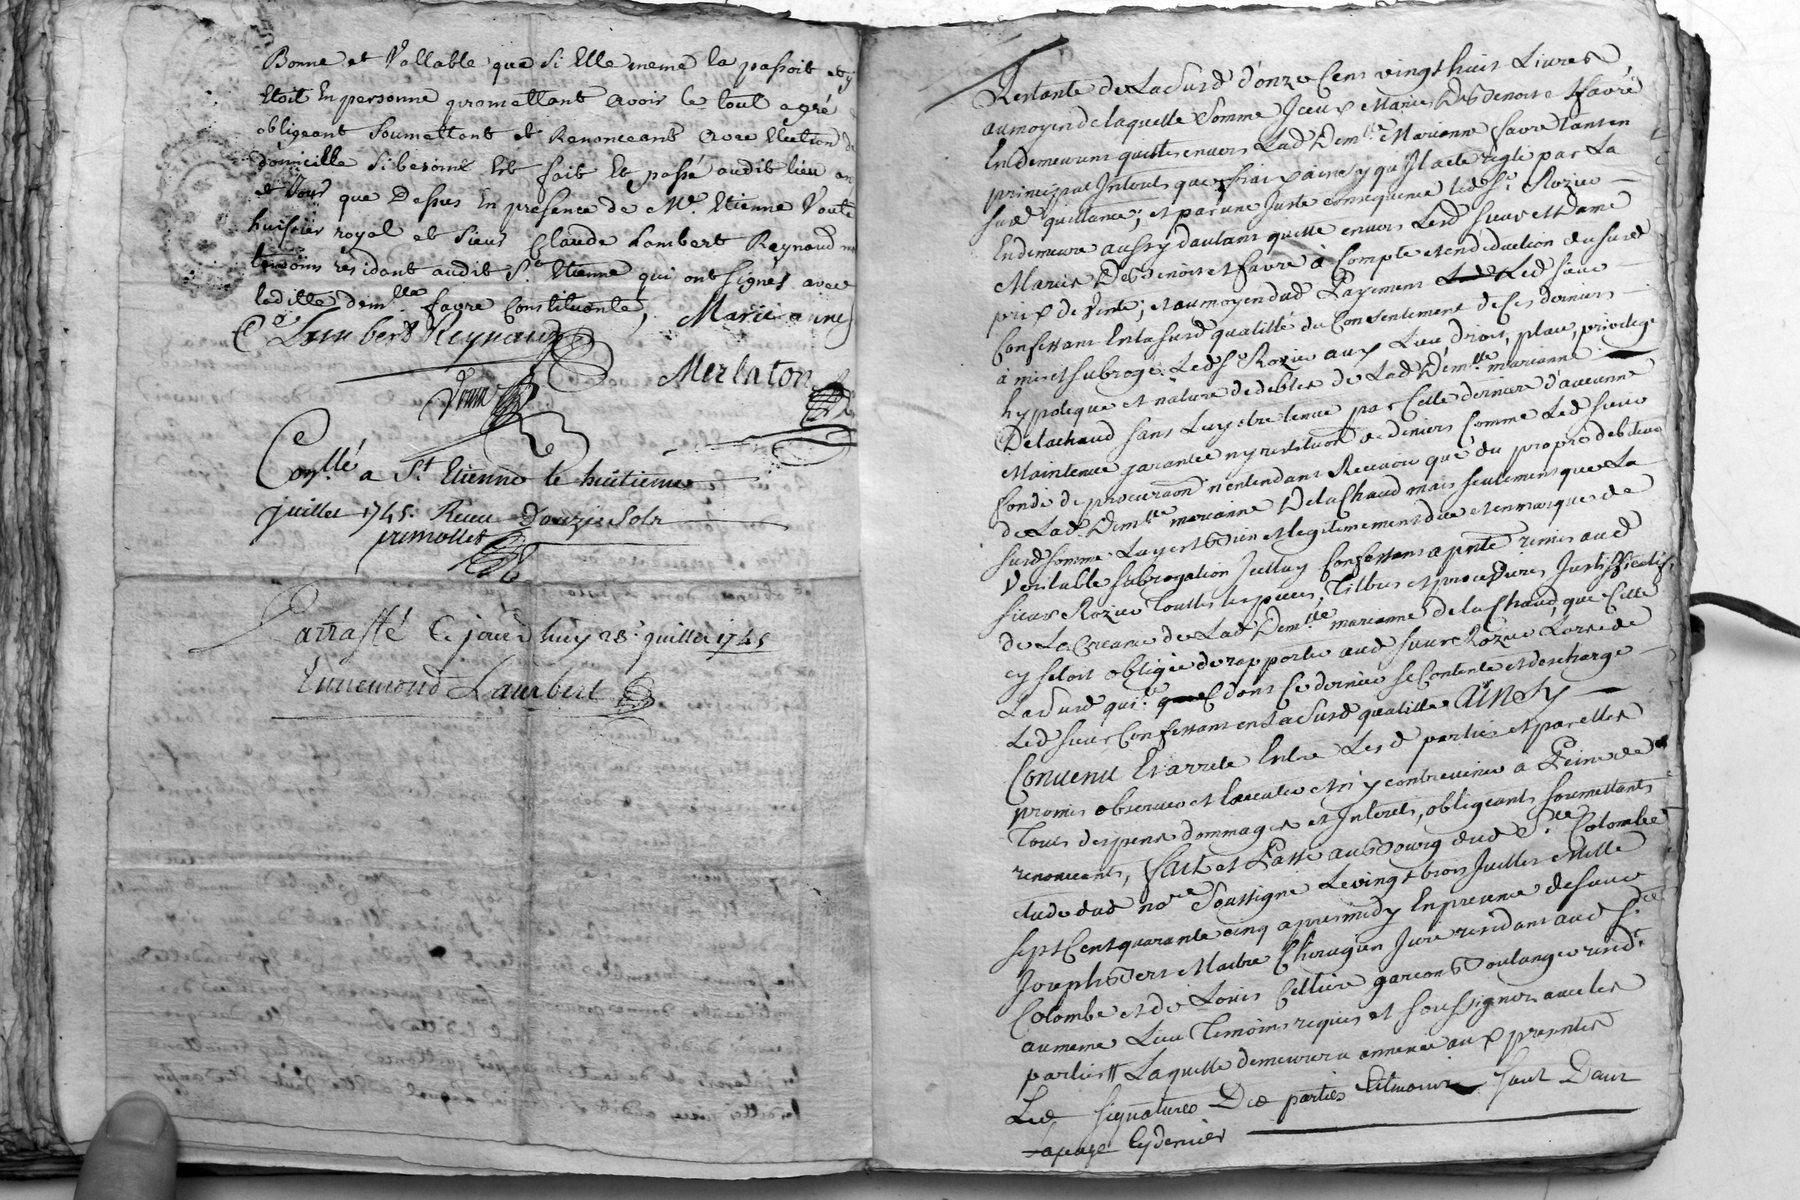 Bonne et Vallable que si Elle meme la passoit et y
Etoit En personne promettant avoir le tout agré
obligeant Soumettant et Renonceant avec Election de
domicille Si besoin Est fait Et passé audit lieu an
et Jour que Dessus En présence de Mr. Etienne Voute
huissier royal et Sieur Claude Lambert Reynaud
temoins résidant audit St. Etienne qui ont Signés avec
laditte demlle favre Constituante, Marie anne
C Lambert Reynaud
Merlaton
Conllé a St. Etienne le huitieme
juillet 1745. Receu Douze Sols
Parraffé Ce jourd huy 28e. juillet 1745
Ennemond Lambert
Restante de La Susd. d'onze Cens vingt huit Livres,
au moyen de laquelle Somme Iceux Maries Desbenoit et favre
En demeurent quittes envers Lad. Demlle. Marianne favre tant en
principal Interets que frais ainsy qu'Il a eté réglé par La
Susd. quittance; et par une juste consequence led. Sr. Rozier
En demeure aussy d'autant quitte envers Lesd. Sieur et Dame
Maries Desbenoit et favre à Compte et en déduction du susd.
prix de Vente; et au moyen dud. Payement Led. sieur
Confessant En la susd. qualitté du Consentement de Ces derniers
à mis et subrogé Led. Sr. Rozier aux Lieu, droit, place, privilege
hypoteque et nature de debtes de Lad. Demlle. marianne
Delachaud sans Luy etre tenue par Cette derniere d'aucunne
Maintenue garantee ny restitution de deniers Comme Led. sieur
fondé de procuraon. n'entendant Recevoir que du propre debiteur
de Lad. Demlle. marianne Delachaud mais seulement que La
susd. somme Luy est Bien et legitimement due et en marque de
Veritable subrogation Jcelluy Confessant a pnte. remis aud.
sieur Rozier Toutes les pieces, Tiltres et procedures Justifficatifs
de La Creance de Lad. Demlle. marianne de la Chaud, que Cette
cy seroit obligée de rapporter aud. sieur Rozier Lors de
La susd. quit. dont Ce dernier se Contente et descharge
Led. sieur Confessant en La susd. qualitté. Ainsy
Convenu Et arreté Entre Lesd. parties et par elles
promis observer et Executer et n'y contrevenir à Peine de
Tous despens dommages et Interets, obligeants, soumettants
renonceants, fait et Passé au Bourg dud. Ste. Colombe
Etude dud. nore. Soussigné Le vingt trois Juillet Mille
sept Cent quarante cinq apres midy En presence de sieur
Joseph Maitre Chirurgien Juré residant aud. Ste.
Colombe et de Louis Celliere garçon Boulanger resid.
au meme Lieu Temoins requis et soussignez avec les
parties Laquelle demeurera annexée aux presentes
Les signatures Des parties Et temoins sont Dans
la page Cy derniere